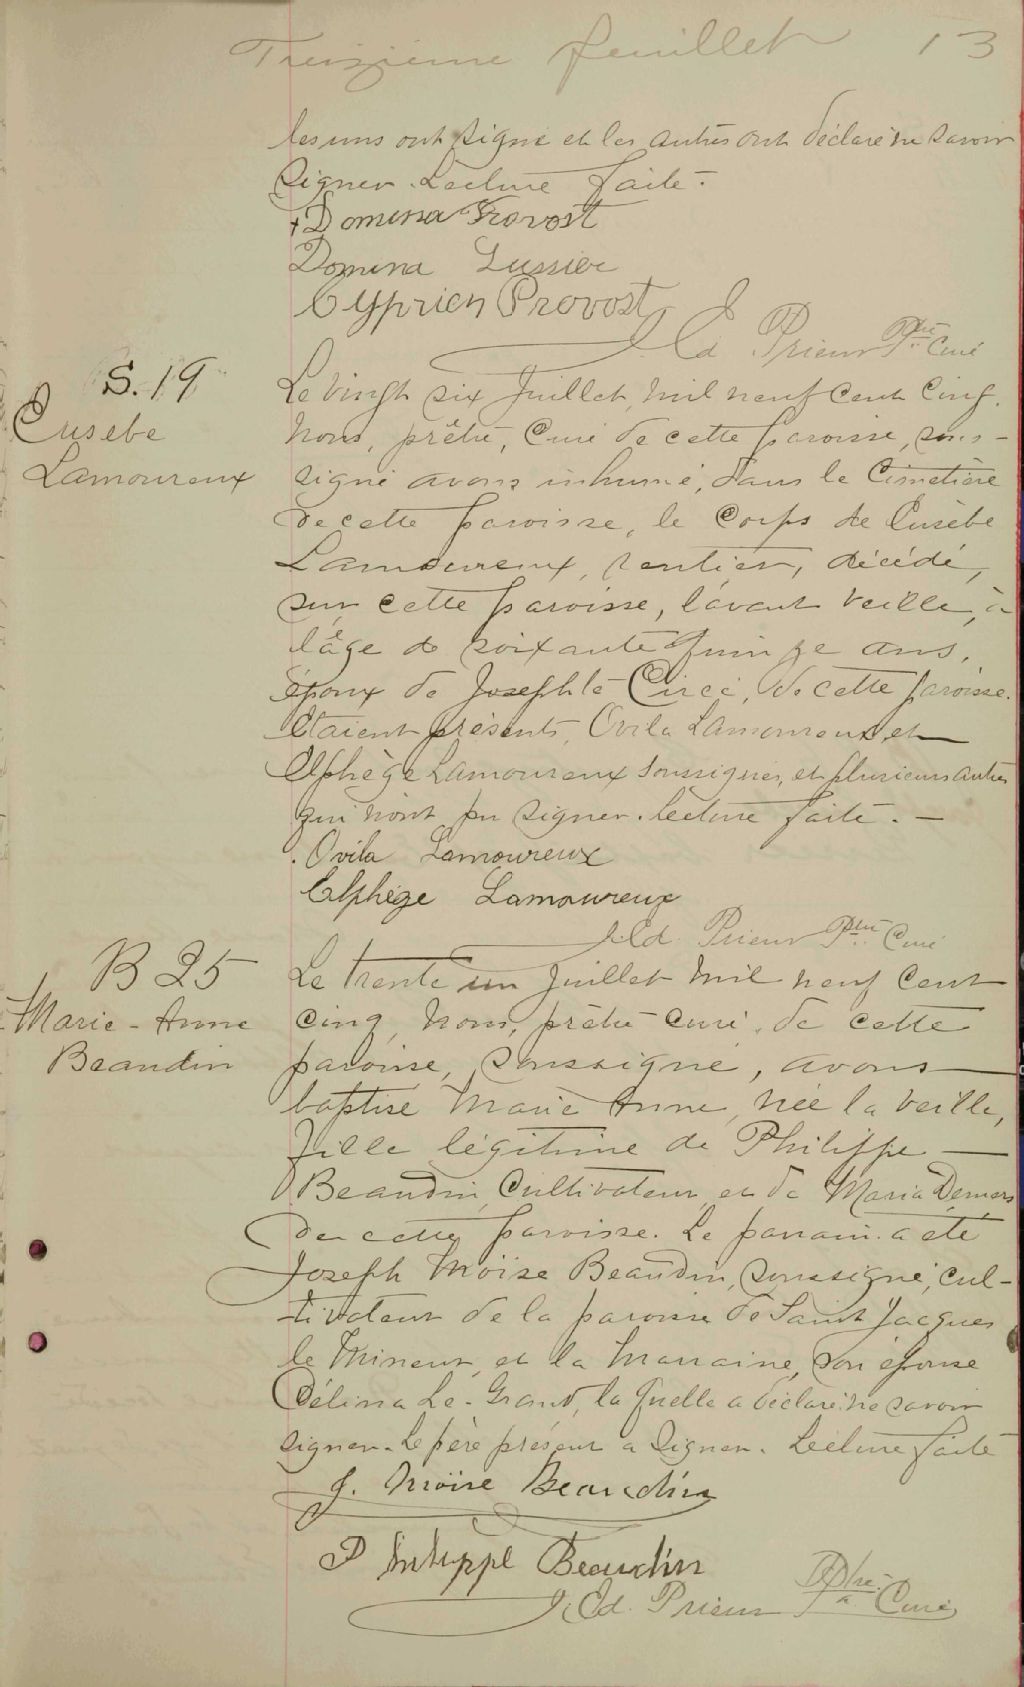 Treizième feuillet 13
les uns ont signé et les autres ont déclaré ne savoir
signer. Lecture faite.
+ Domina Provost
Domina Lussier
Cyprien Provost
J. Ed. Prieur Ptre Curé
S. 19
Eusebe
Lamoureux
Le vingt six Juillet, mil neuf cent cinq.
Nous, prêtre, Curé de cette paroisse, sous-
signé avons inhumé, dans le Cimetière
de cette paroisse, le corps de Eusèbe
Lamoureux, rentier, décédé,
sur cette paroisse, l'avant veille, à
l'âge de soixante quinze ans,
époux de Josephte Circé, de cette paroisse.
Etaient présents, Ovila Lamoureux et
Elphège Lamoureux soussignés, et plusieurs autres
qui n'ont pu signer. lecture faite. -
Ovila Lamoureux
Elphège Lamoureux
J. Ed. Prieur Ptre Curé
B 25
Marie-Anne
Beaudin
Le trente un Juillet mil neuf cent
cinq, Nous, prêtre curé, de cette
paroisse, soussigné, avons
baptisé Marie Anne, née la veille,
fille légitime de Philippe
Beaudin, Cultivateur, et de Maria Demers
de cette paroisse. Le parrain a été
Joseph Moïse Beaudin, soussigné, cul-
tivateur de la paroisse de Saint Jacques
le Mineur, et la Marraine, son épouse
Délina Le-Grand, laquelle a déclaré ne savoir
signer. Le père présent a signer. Lecture faite
J. Moïse Beaudin
Philippe Beaudin
J. Ed. Prieur Ptre Curé